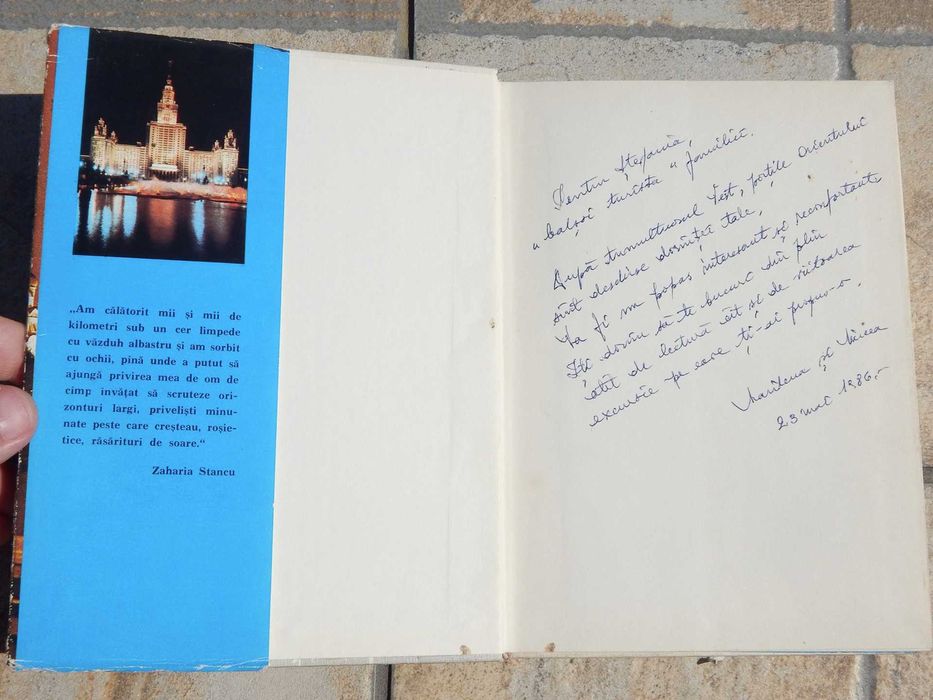 „Am călătorit mii și mii de
kilometri sub un cer limpede
cu văzduh albastru și am sorbit
cu ochii, pînă unde a putut să
ajungă privirea mea de om de
cimp învățat să scruteze ori-
zonturi largi, priveliști minu-
nate peste care creșteau, roșie-
tice, răsărituri de soare.“
Zaharia Stancu
Pentru Ștefania,
turista" familiei.
După tumultuosul Vest, porțile Orientului
sînt deschise dorinței tale.
Va fi un popas interesant și reconfortant.
Îți dorim să te bucuri din plin
atît de lectură cît și de viitoarea
excursie pe care ți-ai propus-o.
Marilena și Mircea
23 mai 1986.-